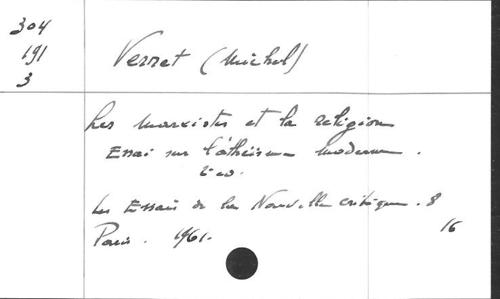 304
191
3
Verret (Michel)
Les marxistes et la religion
Essai sur l'athéisme moderne.
2 éd.
Les Essais de la Nouvelle critique. 8
Paris. 1961.
16